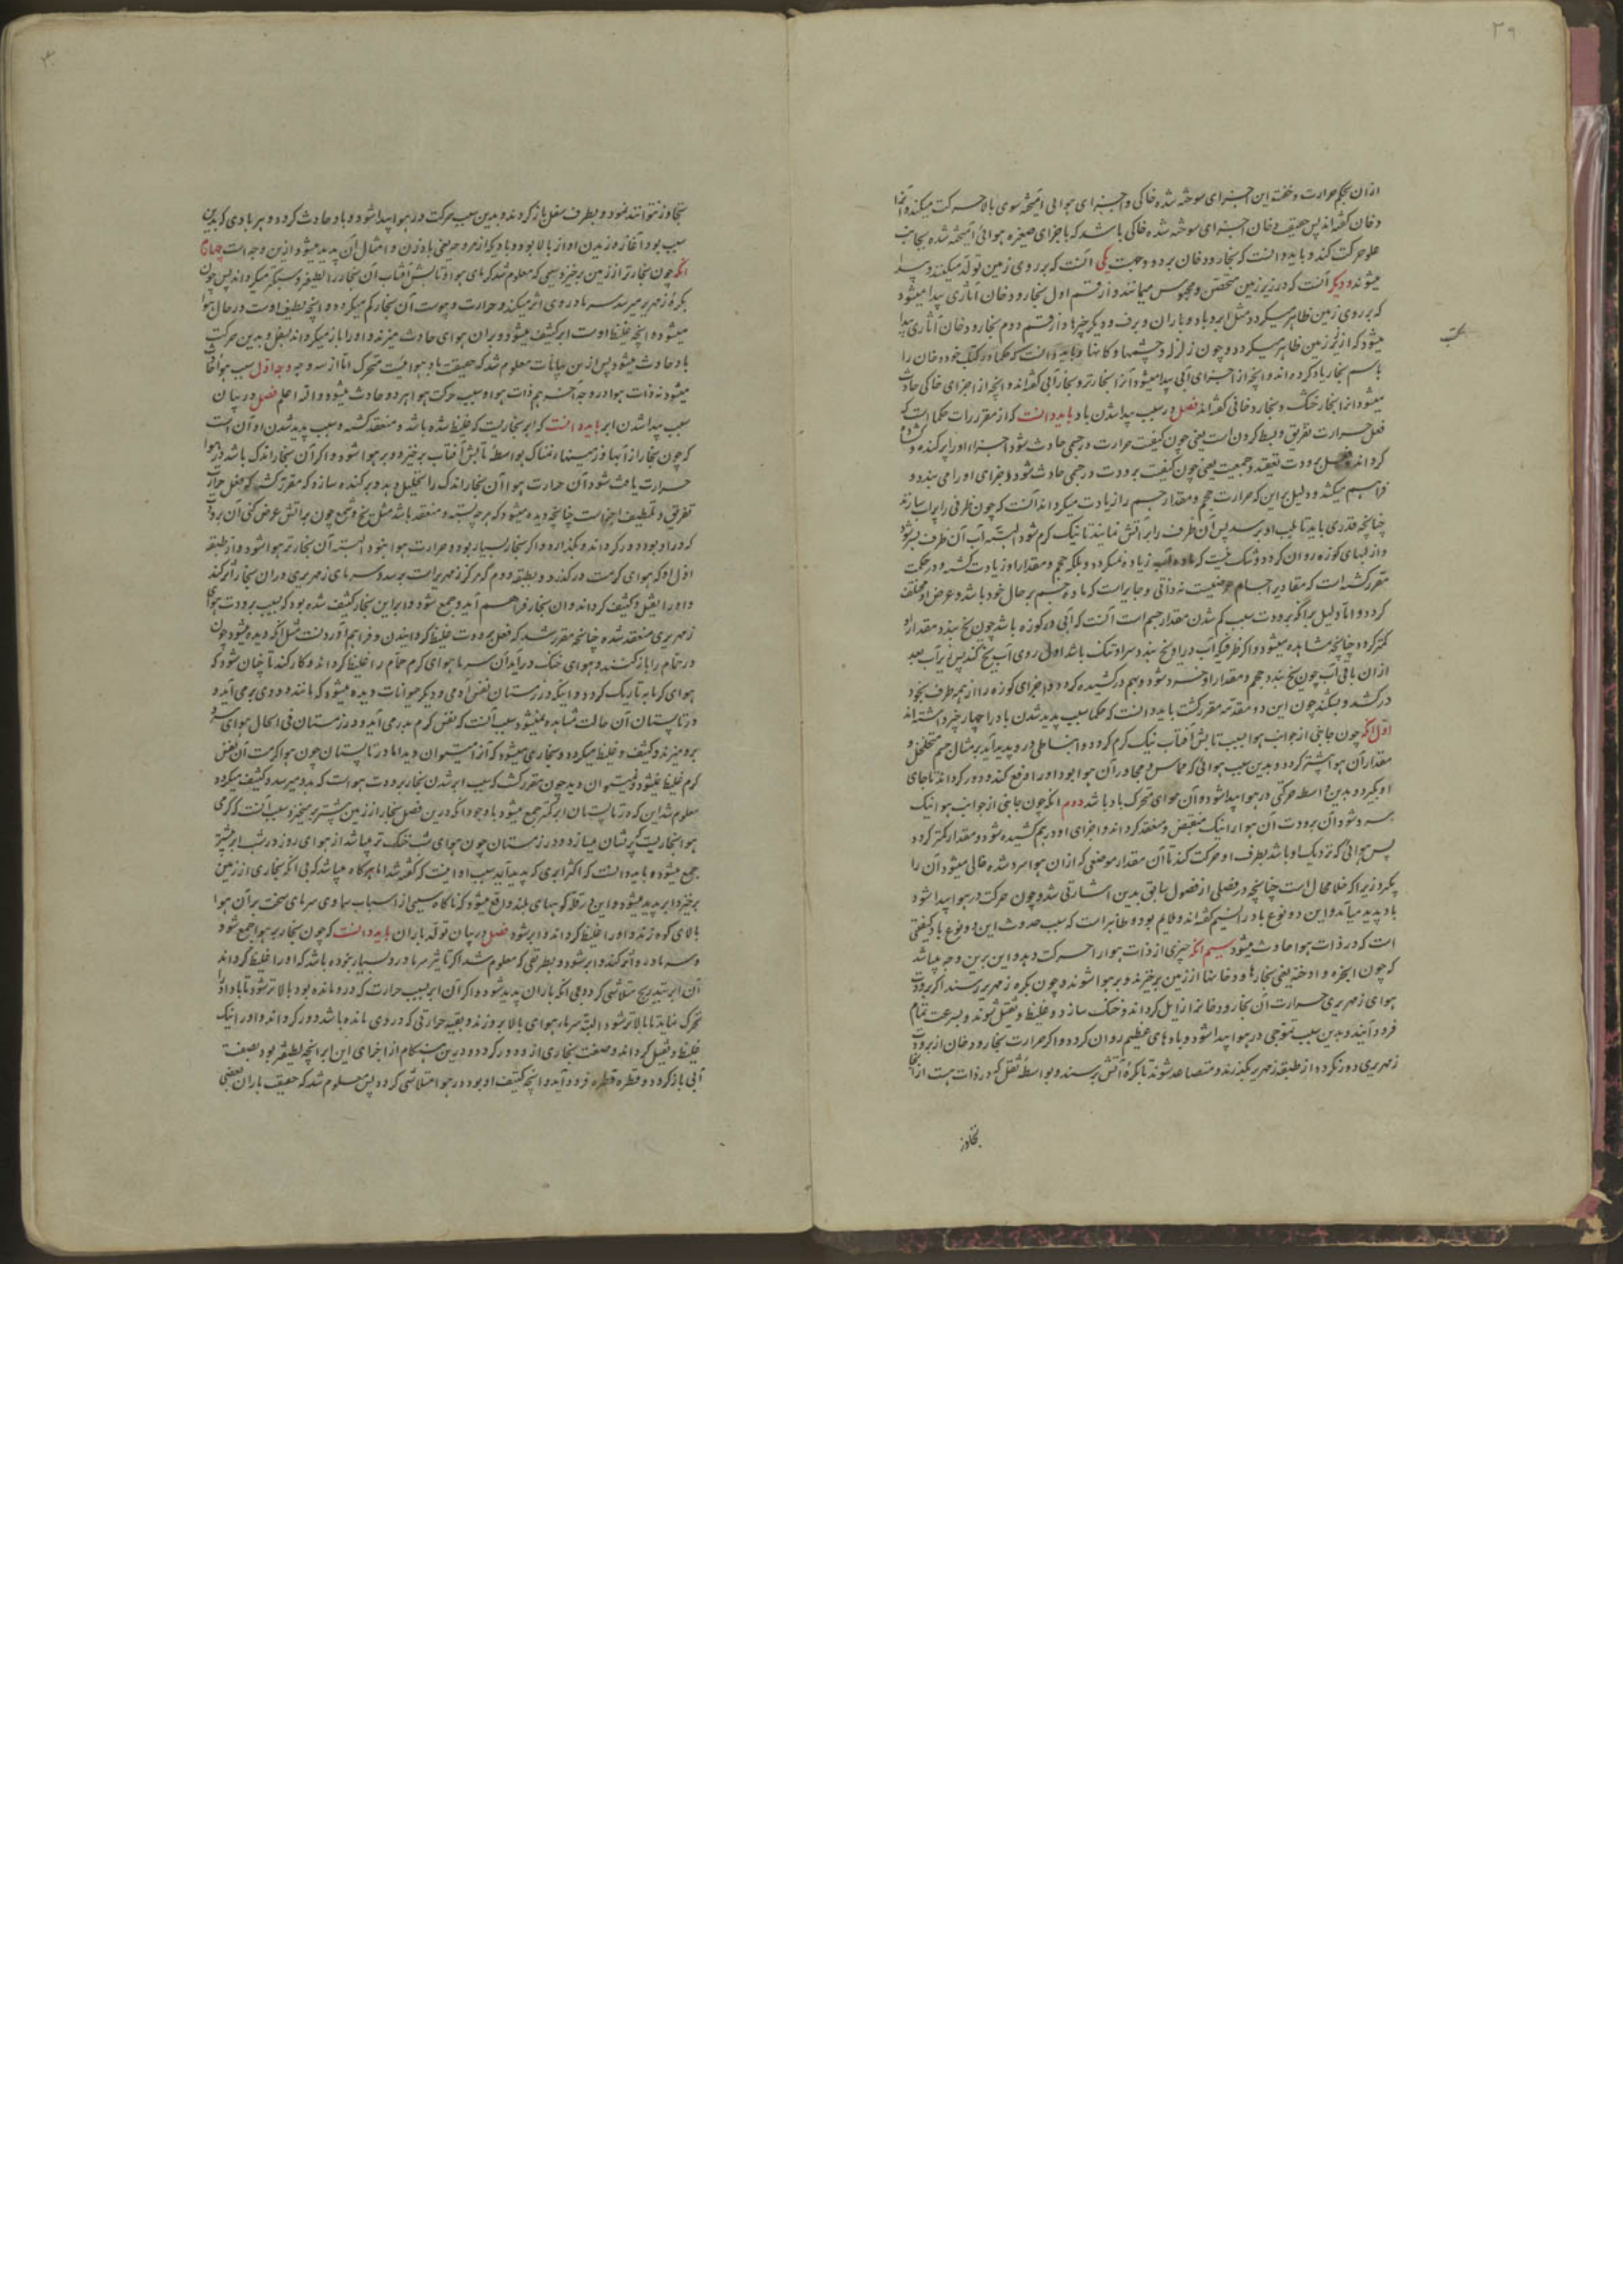 ۲۹
ازان بحکم حرارت و خفت این اجزای سوخته شده خاکی و اجزای هوایی آمیخته سوی بالا حرکت میکند و آنرا
دخان گفته‌اند پس حقیقت دخان اجزای سوخته شده خاکی باشد که با اجزای صغیره هوائی آمیخته شده بجانب
علو حرکت کند و باید دانست که بخار و دخان بر دو وجهت یکی آنست که بر روی زمین تولد میکند و پیدا
میشوند و دیگر آنست که در زیر زمین محتقن و محبوس میمانند و از قسم اول بخار و دخان آثاری پیدا میشود
که بر روی زمین ظاهر میگردد مثل ابر و باد و باران و برف و دیگر چیزها و از قسم دوم بخار و دخان آثاری پیدا
میشود که از زیر زمین ظاهر میگردد و چون زلزله و چشمها و کانها و باید دانست که حکما در کتب خود دخان را
باسم بخار یاد کرده‌اند و آنچه از اجزای آبی پیدا میشود آنرا بخار تر و بخار آبی گفته‌اند و آنچه از اجزای خاکی حادث
میشود آنرا بخار خشک و بخار دخانی گفته‌اند فصل در سبب پیدا شدن باد باید دانست که از مقررات حکما است که
فعل حرارت تفریق و بسط کردن است یعنی چون کیفیت حرارت در جسمی حادث شود اجزاء او را پراکنده و کشاده
گرداند و فعل برودت تعقید و جمعیت یعنی چون کیفیت برودت در جسمی حادث شود اجزای او را می بندد و
فراهم میکشد و دلیل بر این که حرارت حجم و مقدار جسم را زیادت میگرداند آنست که چون ظرفی را پر آب سازند
چنانچه قدری باید تا بلب او برسد پس آن ظرف را بر آتش نمایند تا نیک گرم شود البته آب آن ظرف پر شود
و از لبهای کوزه روان گردد و شک نیست که ماده آب زیاده نمیگردد بلکه حجم و مقدار او زیادت گشته و در حکمت
مقرر گشته است که مقادیر اجسام عرضیست نه ذاتی و جایز است که ماده جسم بر حال خود باشد و عرض او مختلف
گردد و اما دلیل بر آنکه برودت سبب کم شدن مقدار جسم است آنست که آبی در کوزه باشد چون یخ بندد مقدار او
کمتر گردد چنانچه مشاهده میشود و اگر ظرفیکه آب در او یخ بندد سر او تنگ باشد اول روی آب یخ کند پس زیر آب بعد
ازان باقی آب چون یخ بندد حجم و مقدار او خرد شود و بهم در کشیده گردد و اجزای کوزه را از همه طرف بخود
در کشد و بشکند چون این دو مقدمه مقرر گشت باید دانست که حکما سبب پدید شدن باد را چهار چیز داشته‌اند
اول آنکه چون جانبی از جوانب هوا بسبب تابش آفتاب نیک گرم گردد و انبساطی در و پدید آید بر مثان جسم متخلخل و
مقدار آن هوا بیشتر گردد و بدین سبب هوائی که مماس و مجاور آن هوا بود او را دفع کند و دور گرداند تا جای
او بگیرد و بدین واسطه حرکتی در هوا پیدا شود و آن هوای متحرک باد باشد دوم آنکه چون جانبی از جوانب هوا نیک
سرد شود آن برودت آن هوا را نیک منقبض و منعقد گرداند و اجزای او در هم کشیده شود و مقدار کمتر گردد
پس هوائی که نزدیک او باشد بطرف او حرکت کند تا آن مقدار موضعی که ازان هوا سرد شده خالی میشود آن را
پر کند زیرا که خلا محال است چنانچه در فصلی از فصول سابق بدین اشارتی شد و چون حرکت در هوا پیدا شود
باد پدید میاید و این دو نوع باد را نسیم گفته‌اند و ملایم بود و ظاهر است که سبب حدوث این دو نوع باد کیفیتی
است که در ذات هوا حادث میشود سیم آنکه چیزی از ذات هوا را حرکت دهد و این برین وجه میباشد
که چون ابخره و ادخنه یعنی بخارها و دخانها از زمین برخیزند و بر هوا شوند و چون بکره زمهریر رسند اگر برودت
هوای زمهریری حرارت آن بخار و دخان را زایل گرداند و خنک سازد و غلیظ و ثقیل شوند و بسرعت تمام
فرود آیند و بدین سبب تموجی در هوا پیدا شود و بادهای عظیم روان گردد و اگر حرارت بخار و دخان از برودت
زمهریری دور نکرده از طبقه زمهریر بگذرند و متصاعد شوند تا بکرهٔ آتش برسند و بواسطهٔ ثقل که در ذات هست از آنجا
تجاوز
تجاوز نتوانند نمود و بطرف سفل باز گردند و بدین سبب حرکت در هوا پیدا شود و باد حادث گردد و هر بادی که بدین
سبب بود آغازه وزیدن او از بالا بود و بادیکه از مروحه یعنی بادزن و امثال آن پدید میشود ازین وجه است چهارم
آنکه چون بخار تر از زمین برخیزد بسببی که معلوم شد گرمای هوا و تابش آفتاب آن بخار را لطیفتر و سبکتر میگرداند پس چون
بکرهٔ زمهریر میرسد سرما در وی اثر میکند و حرارت و یبوست آن بخار کم میگردد و آنچه لطیف اوست در حال هوا
میشود و آنچه غلیظ اوست ابر کثیف میشود و بران هوای حادث میزند و او را باز میگرداند بسفل و بدین حرکت
باد حادث میشود پس ازین بیانات معلوم شد که حقیقت باد هوائیست متحرک اما از سه وجه وجه اول سبب هوا واقع
میشود نه ذات هوا و در وجه آخر هم ذات هوا و سبب حرکت هوا هر دو حادث میشود والله اعلم فصل در بیان
سبب پیدا شدن ابر باید دانست که ابر بخاریست که غلیظ شده باشد و منعقد گشته و سبب پدید شدن او آن است
که چون بخار از آبها و زمینهاء نمناک بواسطهٔ تابش آفتاب برخیزد و بر هوا شود و اگر آن بخار اندک باشد و هوا
حرارت یافت شود آن حرارت هوا آن بخار اندک را تحلیل دهد و پراکنده سازد که مقرر گشته که فعل حرارت
تفریق و تلطیف اجزاست چنانچه دیده میشود که هر چه بسته و منعقد باشد مثل یخ و شمع چون بر آتش عرض کنی آن برودت
که در او بود دور گرداند و بگدازد و اگر بخار بسیار بود و حرارت هوا نبود البته آن بخار تر هوا شود و از طبقه
اول او که هوای گرمست در گذرد و بطبقه دوم که مرکز زمهریر است برسد و سرمای زمهریری دران بخار اثر کند
و او را ثقیل و کثیف گرداند و ان بخار فراهم آید و جمع شود و ابر این بخار کثیف شده بود که بسبب برودت هوای
زمهریری منعقد شده چنانچه مقرر شد که فعل برودت غلیظ گردانیدن و فراهم آوردنست مثل آنکه دیده میشود چون
در حمام را باز کنند و هوای خنک در آید آن سرما هوای گرم حمام را غلیظ گرداند و کار کند تا چنان شود که
هوای گرمابه تاریک گردد و اینکه در زمستان نفس آدمی و دیگر حیوانات دیده میشود که مانند دودی بر می آید و
در تابستان آن حالت مشاهده نمیشود سبب آنست که نفس گرم بدر می آید و در زمستان فی الحال هوای سرد
برو میزند و کثیف و غلیظ میگردد و بخاری میشود که آنرا میتوان دید اما در تابستان چون هوا گرمست آن نفس
گرم غلیظ نمیشود و نمیتوان دید چون مقرر گشت که سبب ابر شدن بخار برودت هواست که بدو میرسد و کثیف میگردد
معلوم شد این که در تابستان ابر کمتر جمع میشود باوجود آنکه درین فصل بخار از زمین بیشتر برمیخیزد سبب آنست که گرمی
هوا بخاریت پریشان میسازد و در زمستان چون هوای شب خنک تر میباشد از هوای روز در شب ابر بیشتر
جمع میشود و باید دانست که اکثر ابری که پدید آید سبب او اینست که گفته شد اما هر گاه میباشد که بی آنکه بخاری از زمین
برخیزد ابر پدید میشود و این در قلهٔ کوههای بلند واقع میشود که ناگاه بسببی از اسباب سماوی سرمای سخت بر آن هوا
بالای کوه زند و او را غلیظ گرداند و ابر شود فصل در بیان تولد باران باید دانست که چون بخار بر هوا جمع شود
و سرما درو اثر کند و ابر شود و بطریقی که معلوم شد اگر تاثیر سرما در و بسیار نبوده باشد که او را غلیظ گرداند
آن ابر بتدریج متلاشی گردد بی آنکه باران پدید شود و اگر آن ابر بسبب حرارت که در و مانده بود بالاتر شود تا باد او را
تحریک نماید تا بالاتر شود البته سرمای هوای بالا برو زند و بقیه حرارتی که در وی مانده باشد دور گرداند و او را نیک
غلیظ و ثقیل گرداند و صفت بخاری از و دور گردد و درین هنگام از اجزای این ابر آنچه لطیفتر بود بصفت
آبی باز گردد و قطره قطره فرود آید و آنچه کثیف او بود در هوا متلاشی گردد پس معلوم شد که حقیقت باران بعضی